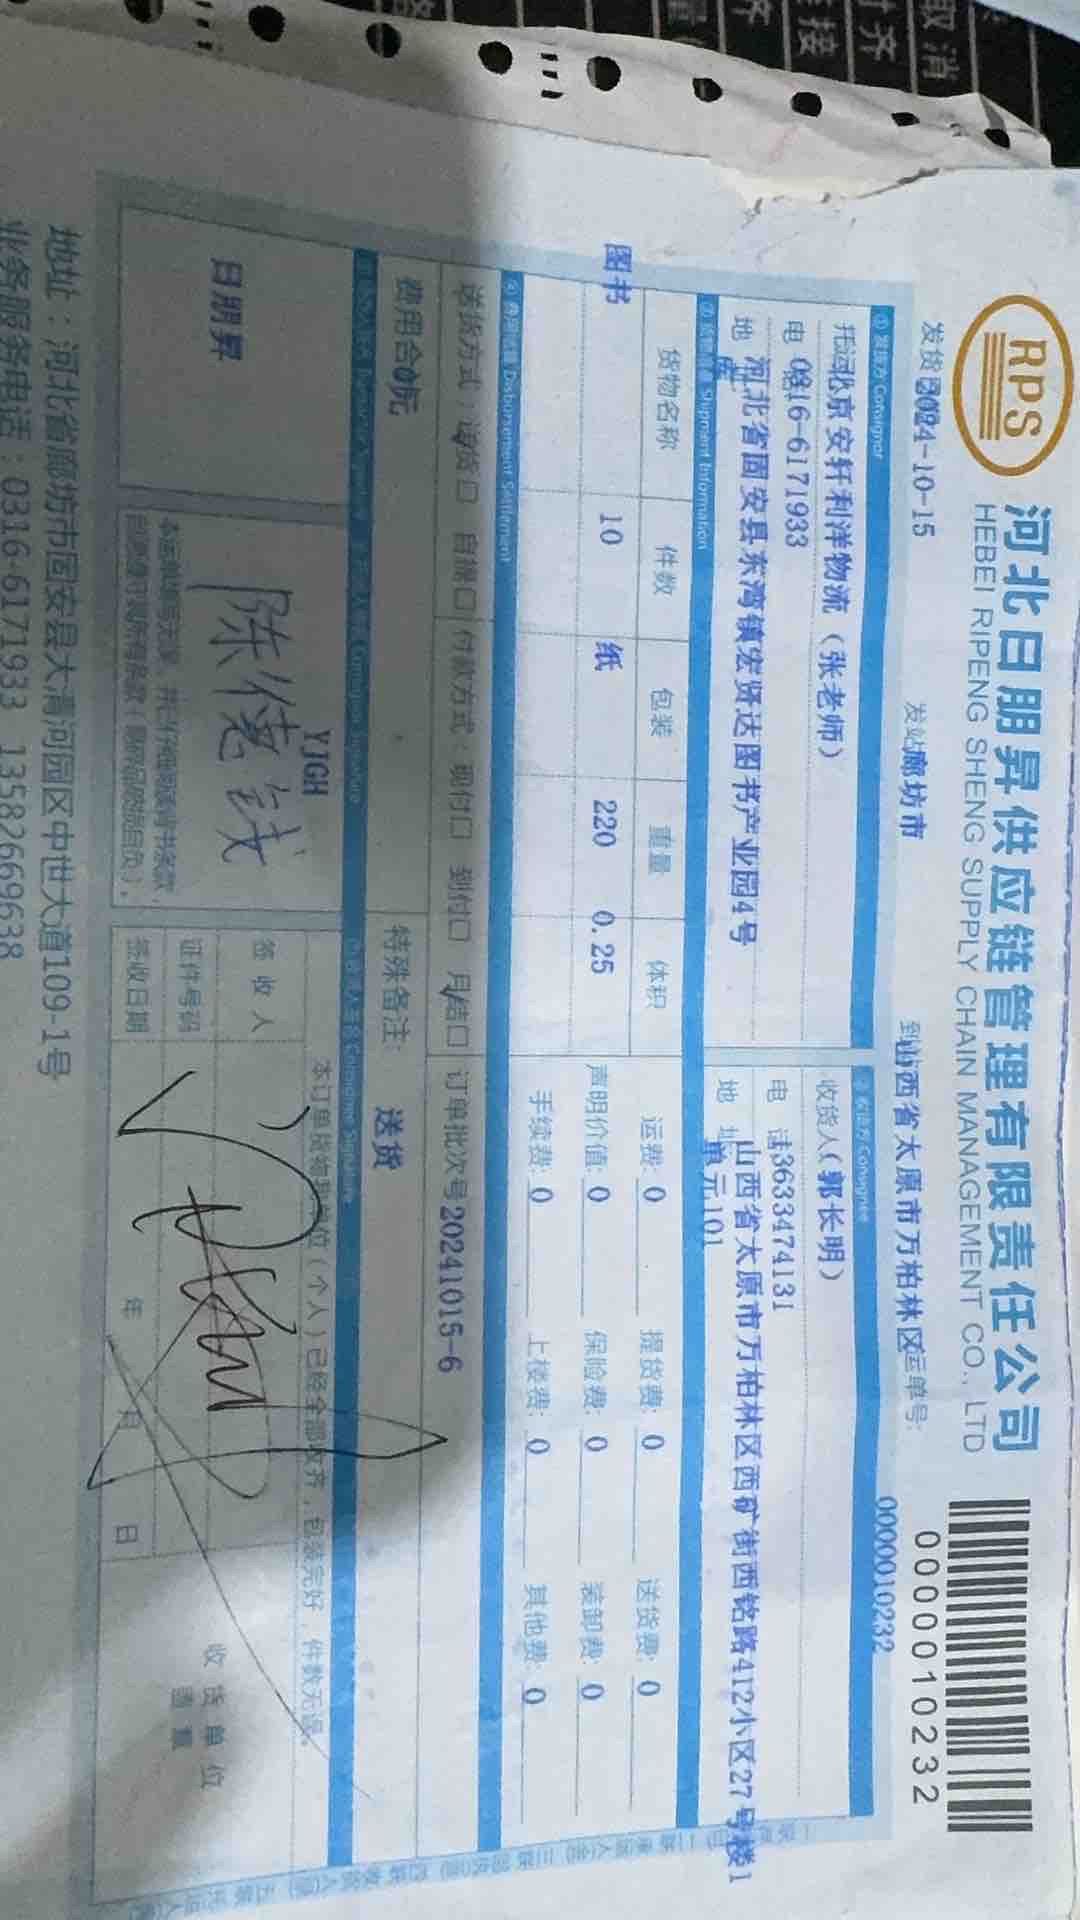 RPS
河北日朋昇供应链管理有限责任公司
HEBEI RIPENG SHENG SUPPLY CHAIN MANAGEMENT CO., LTD
0000010232
发货 2024-10-15 发站 廊坊市 到站 山西省太原市万柏林区 运单号: 0000010232
① 发货方 Consignor
托运 北京安轩利洋物流（张老师）
电 话 0316-6171933
地 址 河北省固安县东湾镇宏贤达图书产业园4号
收货方 Consignee
收货人（郭长明）
电 话 3633474131
地 址 山西省太原市万柏林区西矿街西铭路412小区27号楼1
单元101
Shipment Information
货物名称 件数 包装 重量 体积
图书 10 纸 220 0.25
运费: 0 提货费: 0 送货费: 0
声明价值: 0 保险费: 0 装卸费: 0
手续费: 0 上楼费: 0 其他费: 0
④ 费用结算 Disbursement Settlement
送货方式: 送货口 自提口 付款方式: 现付口 到付口 月结口 订单批次号 20241015-6
费用合 0元
特殊备注: 送货
日朋昇
YJGH
陈德钱
本订单货物我单位（个人）已经全部收齐，包装完好，件数无误。
签 收 人
证件号码
签收日期 年 月 日
收 货 单 位
盖 章
地址：河北省廊坊市固安县大清河园区中世大道109-1号
业务服务电话：0316-6171933 13582669638